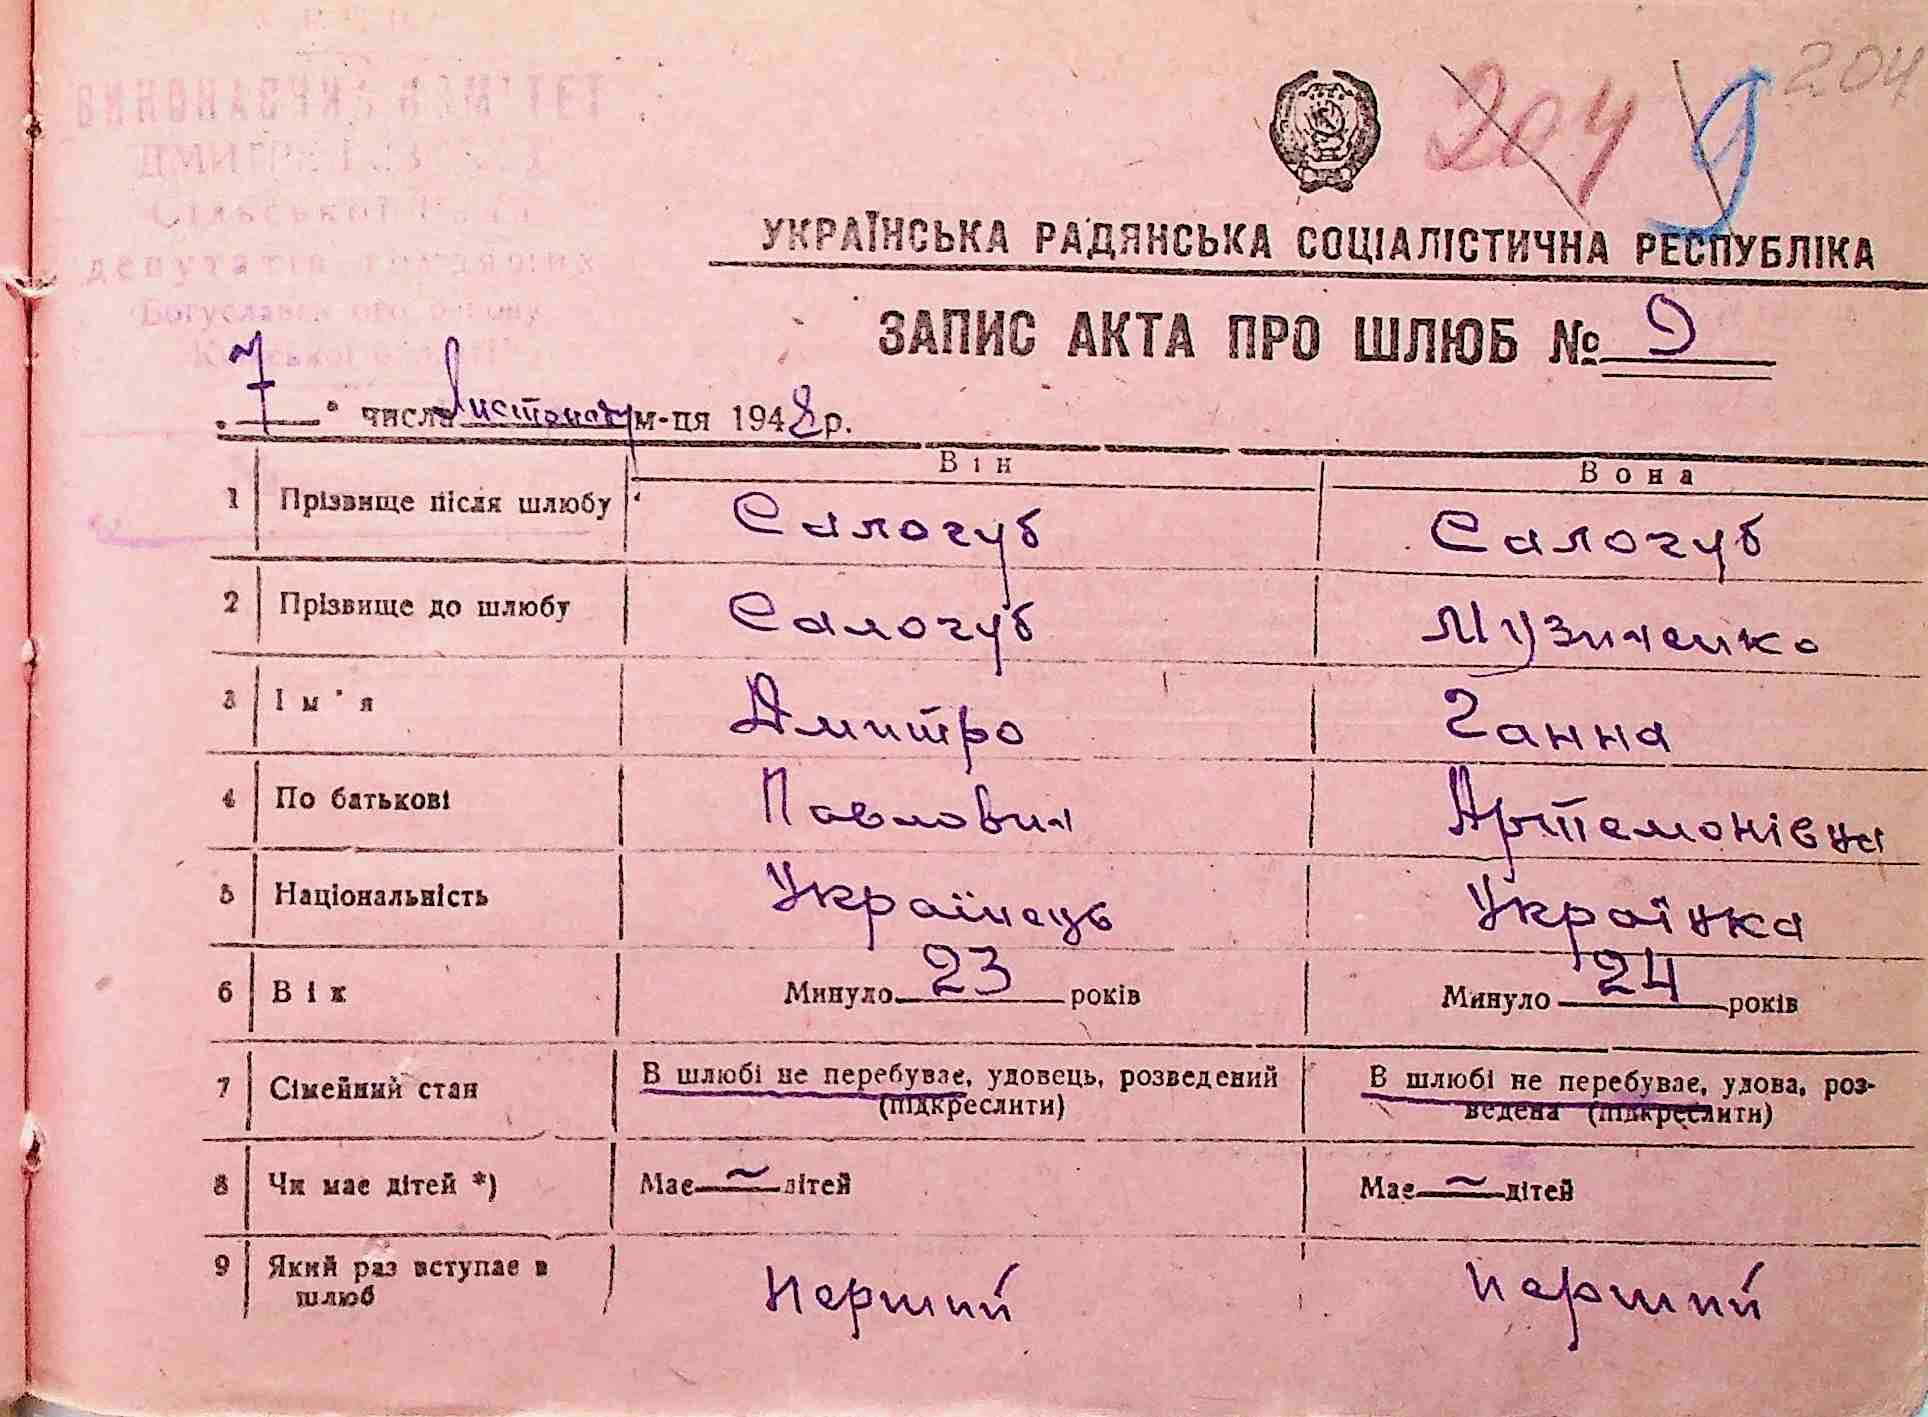 ВИКОНАВЧИЙ КОМІТЕТ
Сільської Ради
депутатів трудящих
Богуславського району
204
204
9
УКРАЇНСЬКА РАДЯНСЬКА СОЦІАЛІСТИЧНА РЕСПУБЛІКА
ЗАПИС АКТА ПРО ШЛЮБ № 9
"7" числа листопаду м-ця 1948 р.
Він Вона
1 Прізвище після шлюбу Салогуб Салогуб
2 Прізвище до шлюбу Салогуб Музиченко
3 Ім'я Дмитро Ганна
4 По батькові Павлович Артемонівна
5 Національність Українець Українка
6 Вік Минуло 23 років Минуло 24 років
7 Сімейний стан В шлюбі не перебуває, удовець, розведений (підкреслити) В шлюбі не перебуває, удова, роз-
ведена (підкреслити)
8 Чи має дітей *) Має ~ дітей Має ~ дітей
9 Який раз вступає в
шлюб перший перший